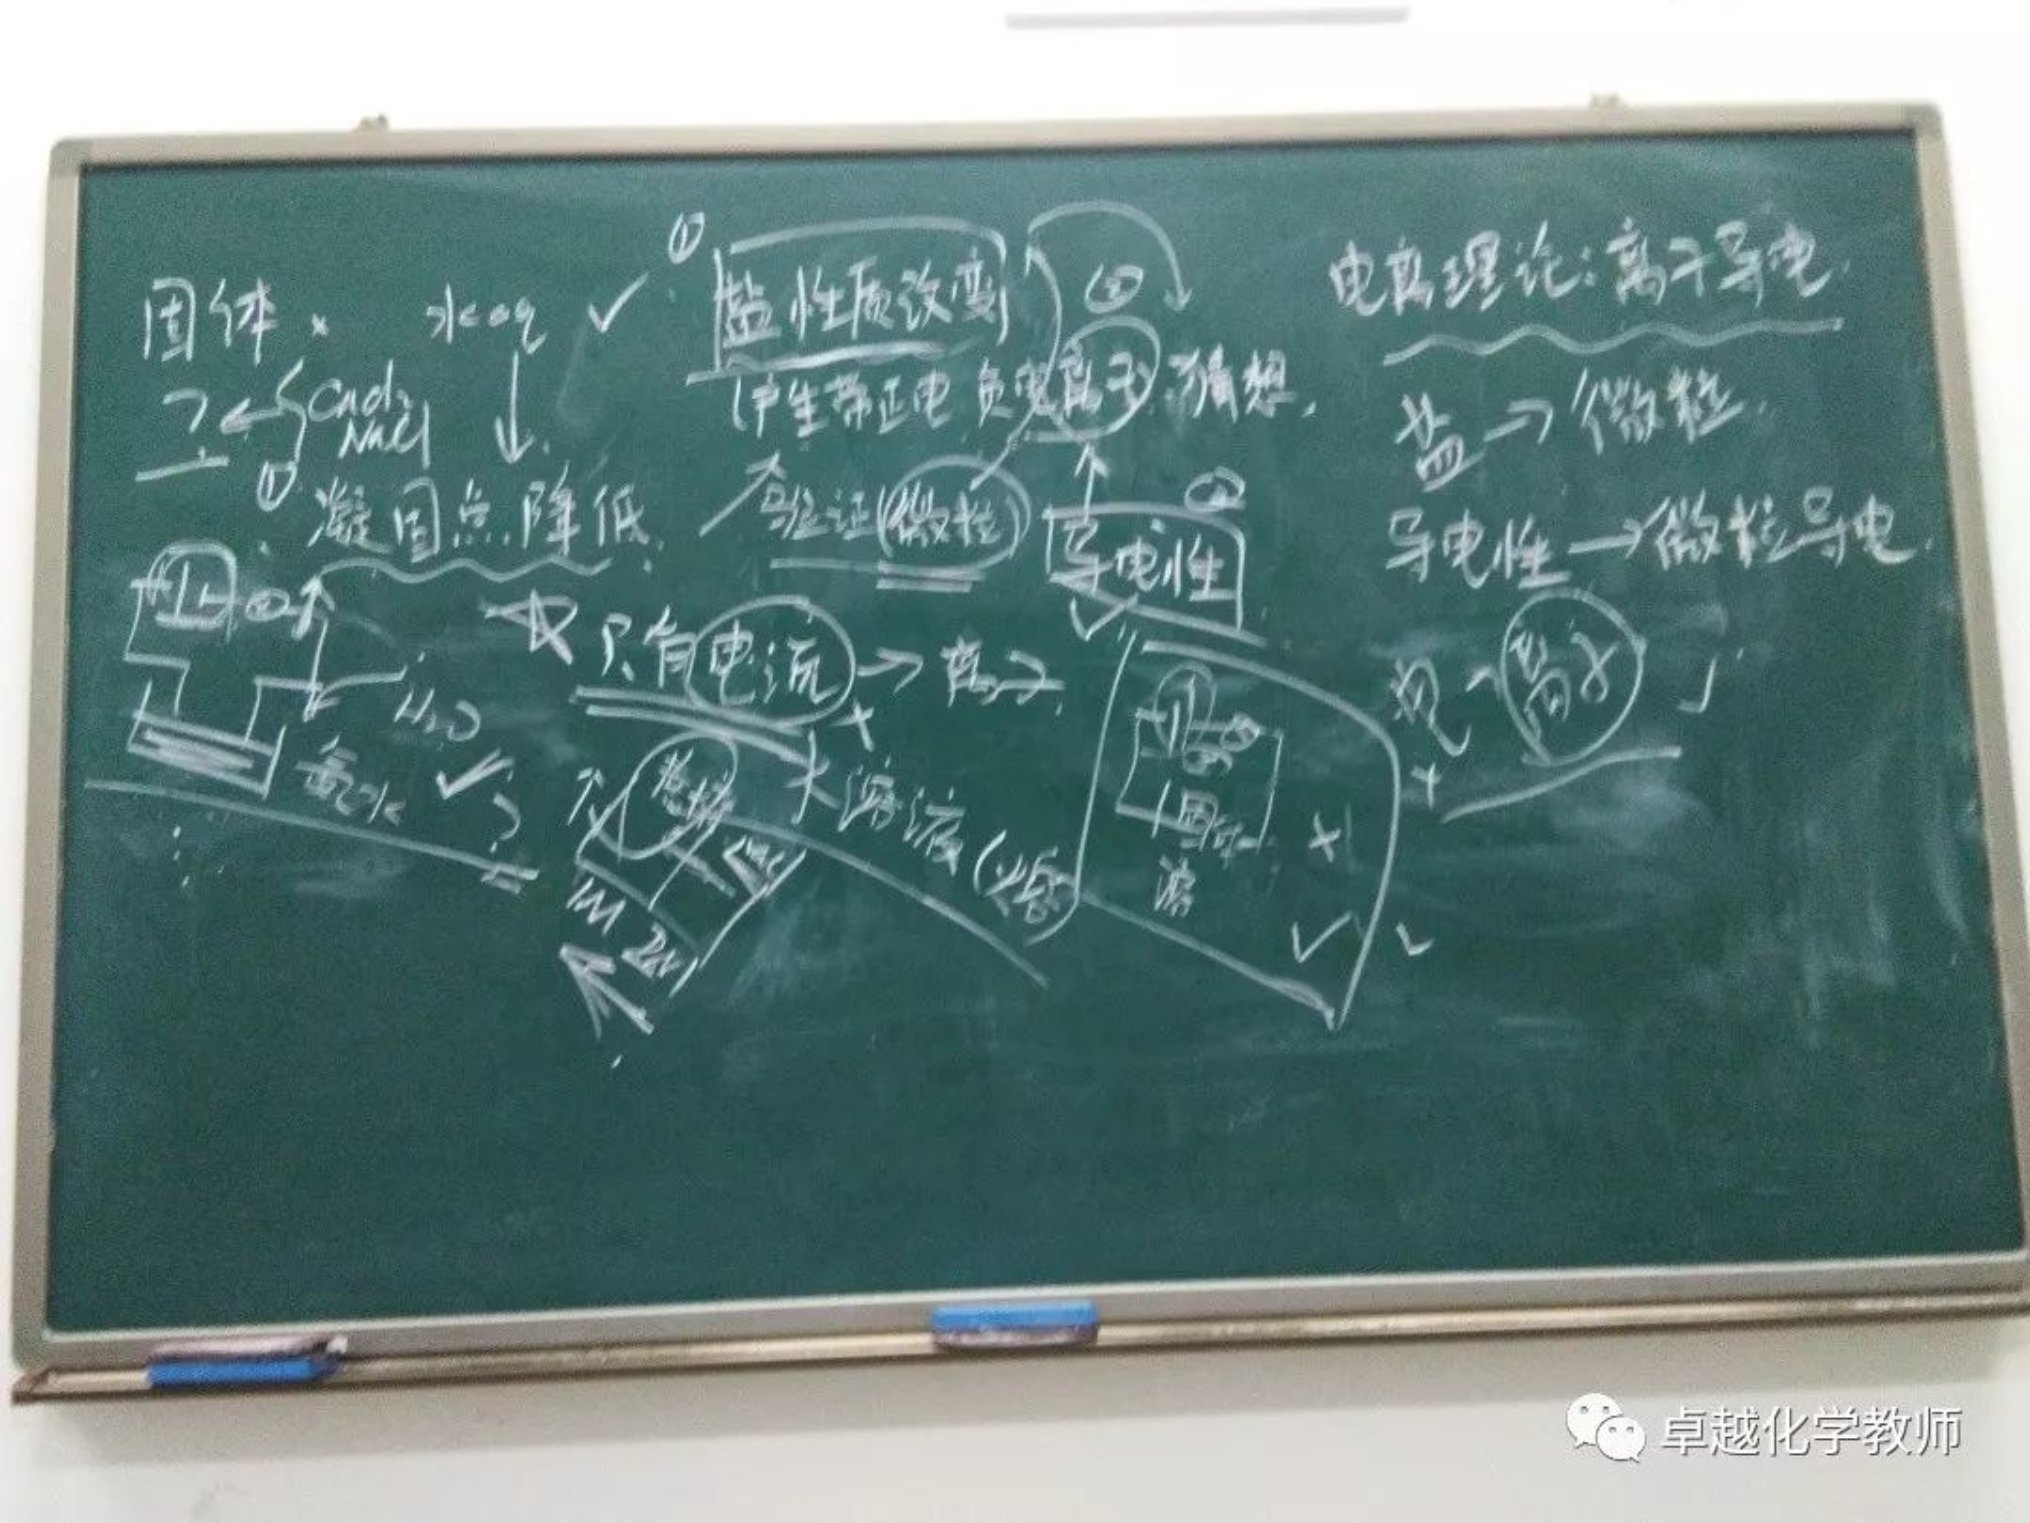 固体 × 水 aq ✓
CaCl₂
NaCl
①
凝固点降低
H₂O
氨水 ✓ ?
① 盐性质改变
②
(产生带正电 负电离子 猜想
验证(微粒)
②
导电性
✓
只有电流 → 离子
大溶液(熔
固体 ×
溶 ✓
电离理论:离子导电.
盐→微粒.
导电性→微粒导电.
离子
卓越化学教师